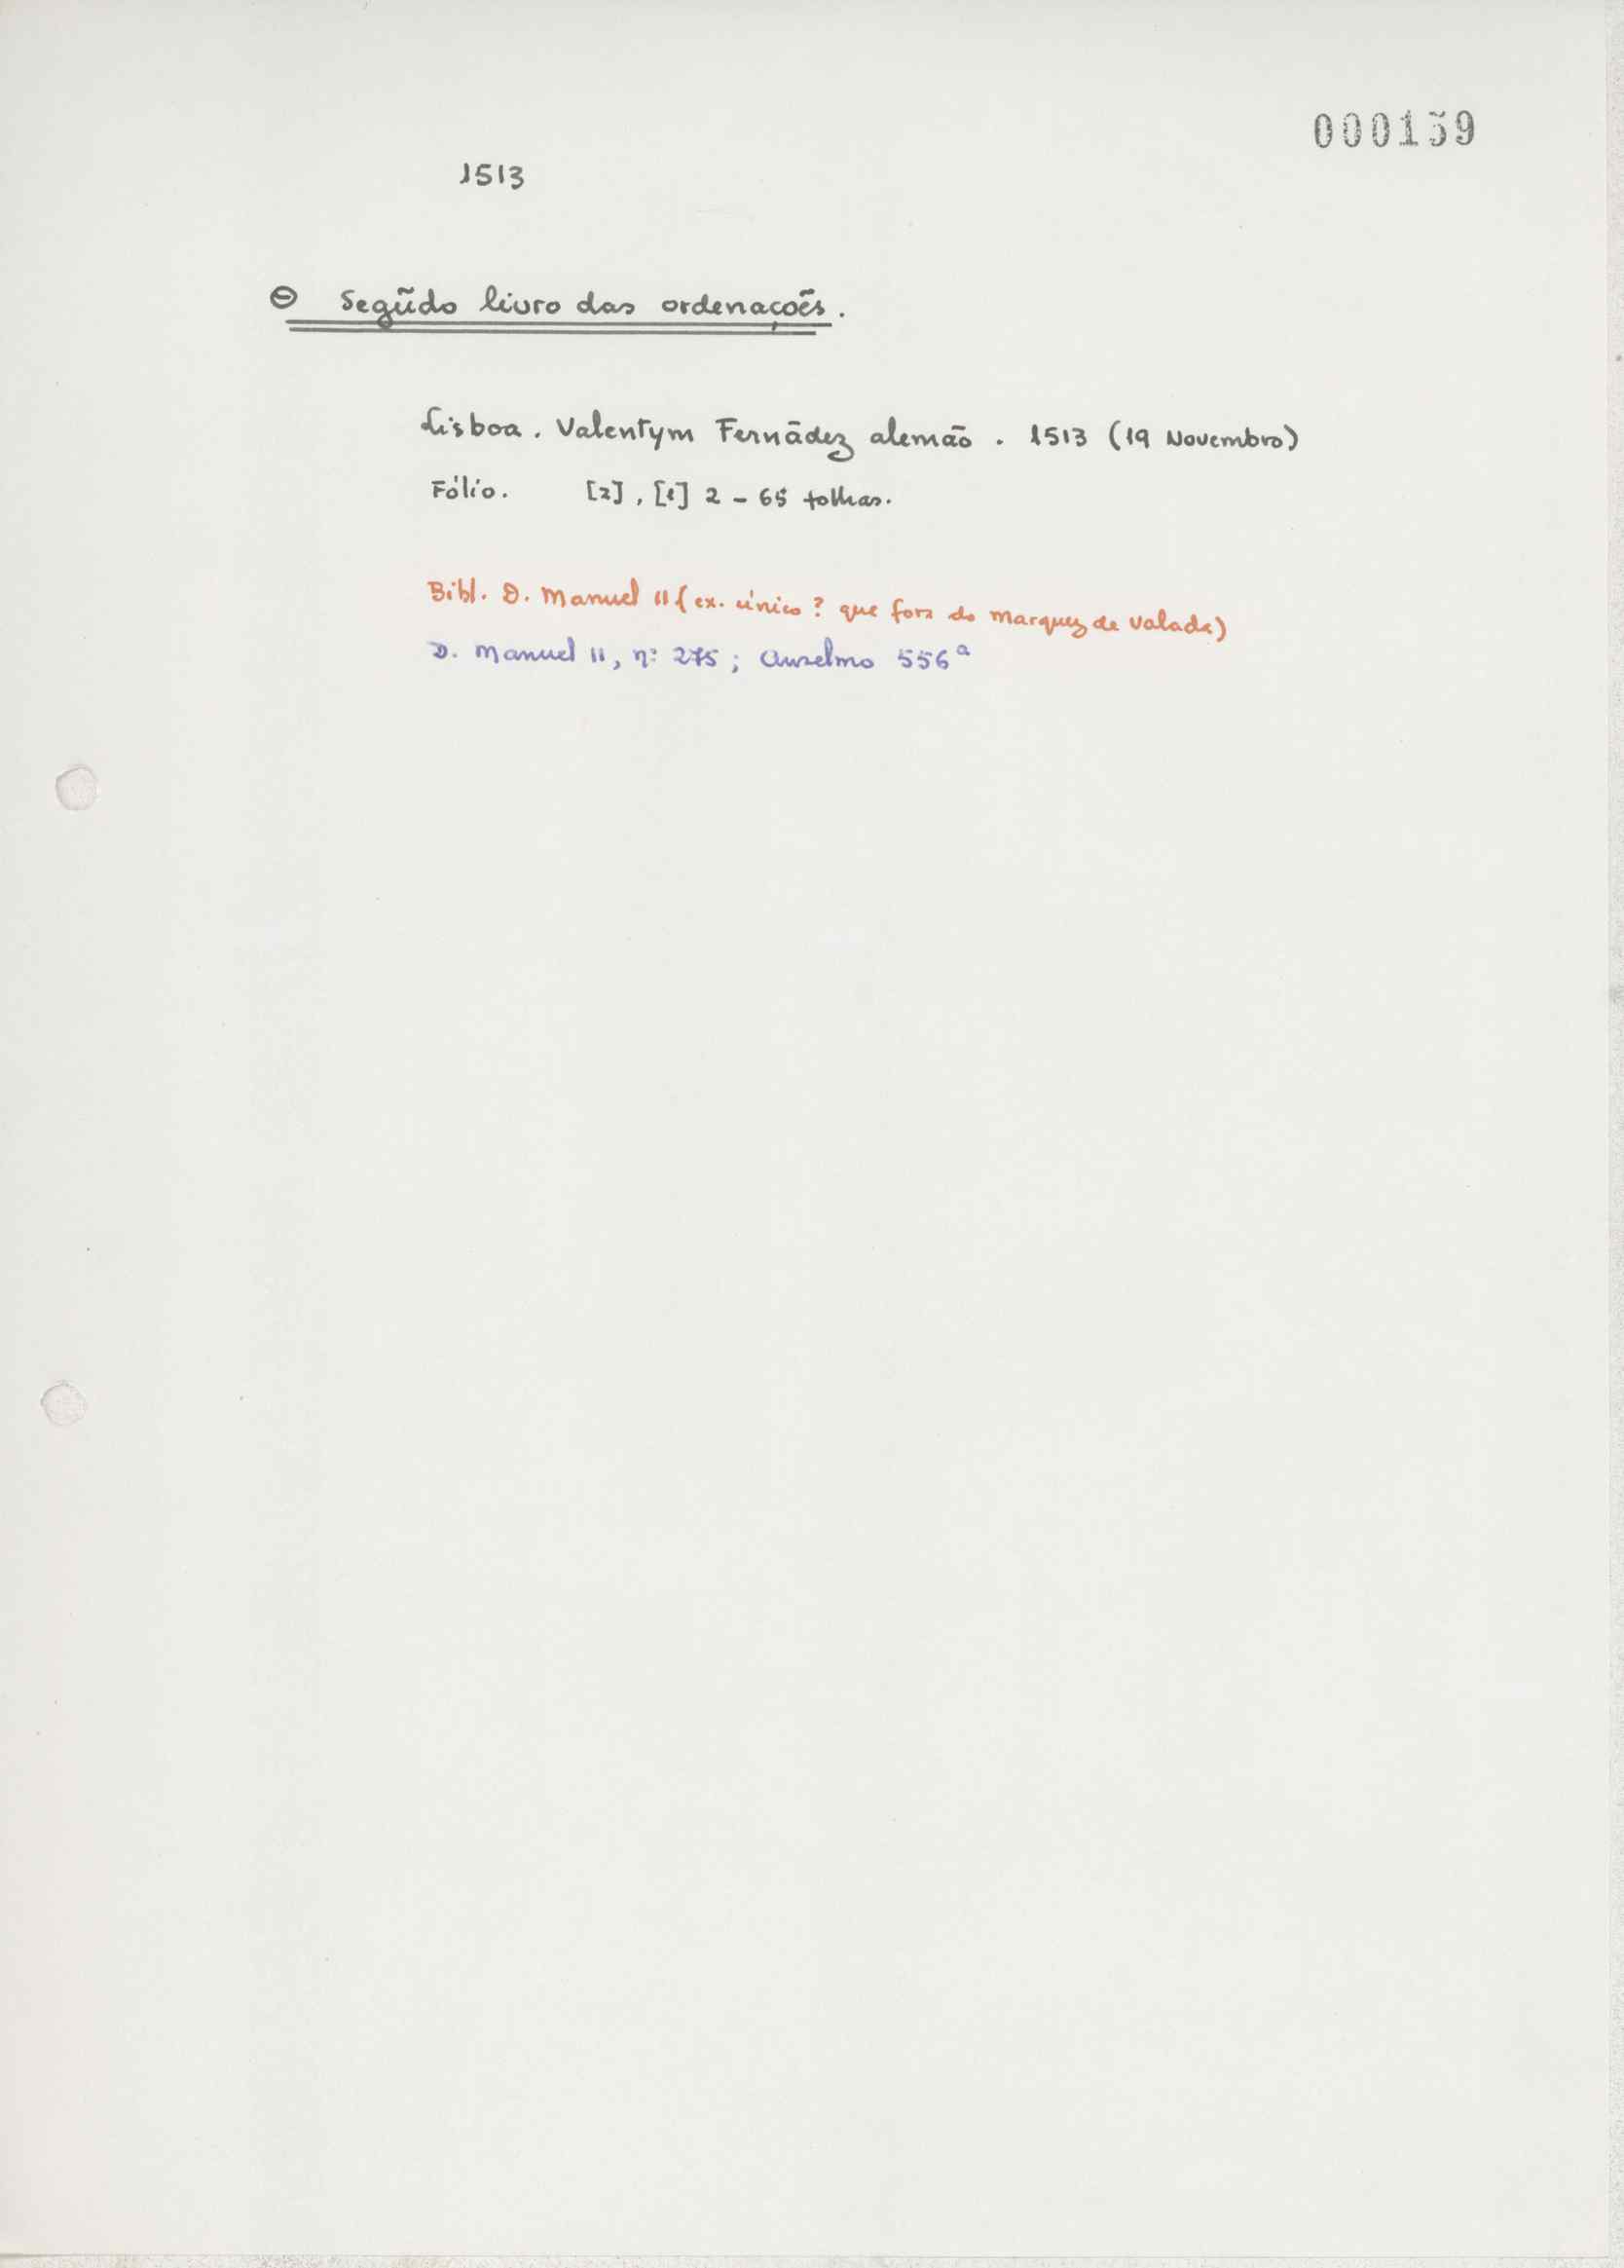 000159
1513
⊖ Segũdo livro das ordenaçoẽs.
Lisboa. Valentym Fernãdez alemão. 1513 (19 Novembro)
Fólio. [2], [1] 2 - 65 folhas.
Bibl. D. Manuel II (ex. único? que fora do Marquez de Valada)
D. Manuel II, nº 275; Anselmo 556ª